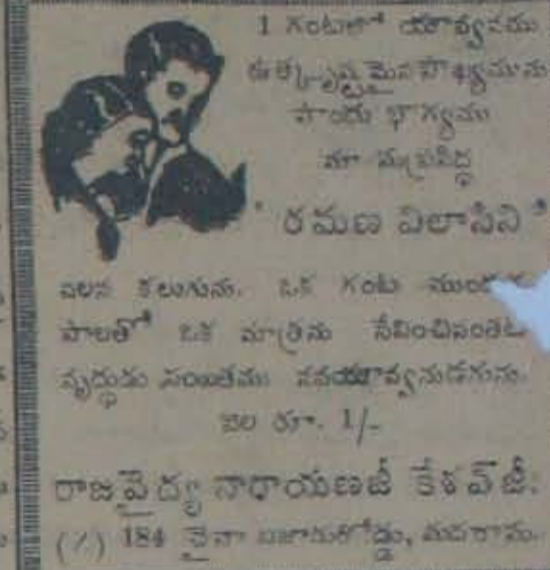 1 గంటలో యౌవ్వనము
ఉత్కృష్టమైన సౌఖ్యమును
పొందు భాగ్యము
మా సుప్రసిద్ధ
" రమణ విలాసిని "
వలన కలుగును. ఒక గంట ముందు
పాలతో ఒక మాత్రను సేవించినంతట
వృద్ధుడు సయితము నవయౌవ్వనుడగును.
వెల రూ. 1/-
రాజవైద్య నారాయణజీ కేశవ్‌జీ.
(%) 184 చైనా బజారురోడ్డు, మదరాసు.